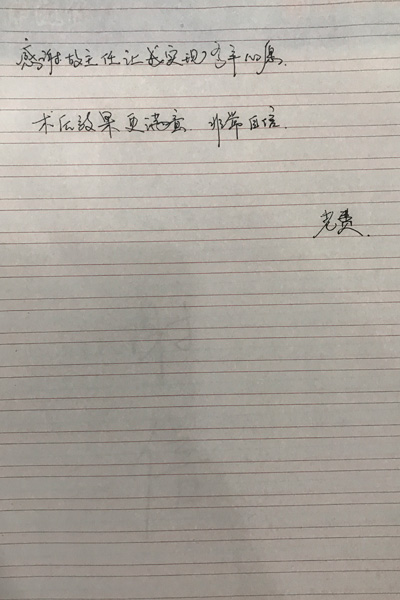 感谢故主任让我实现了多年心愿.
术后效果更满意. 非常自信.
老费.